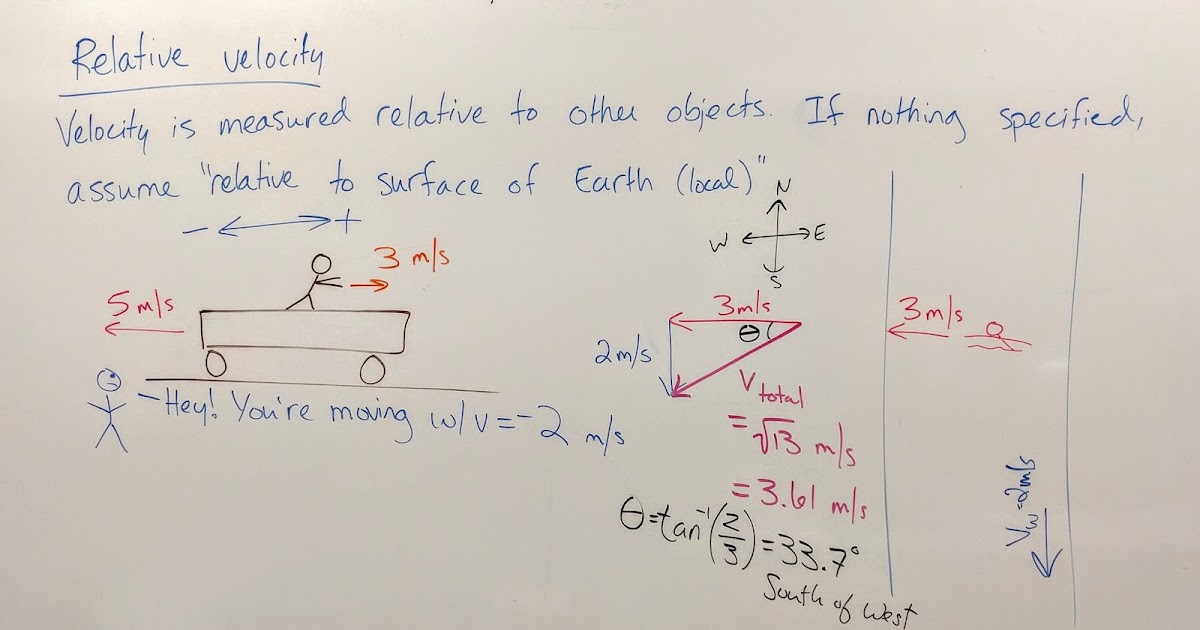 Relative velocity
Velocity is measured relative to other objects. If nothing specified,
assume "relative to surface of Earth (local)"
- +
3 m/s
5 m/s
-Hey! You're moving w/ v = -2 m/s
N
W E
S
3m/s
θ
2m/s
V total
= √13 m/s
= 3.61 m/s
θ = tan⁻¹(2/3) = 33.7°
South of West
3m/s
Vw = 2m/s